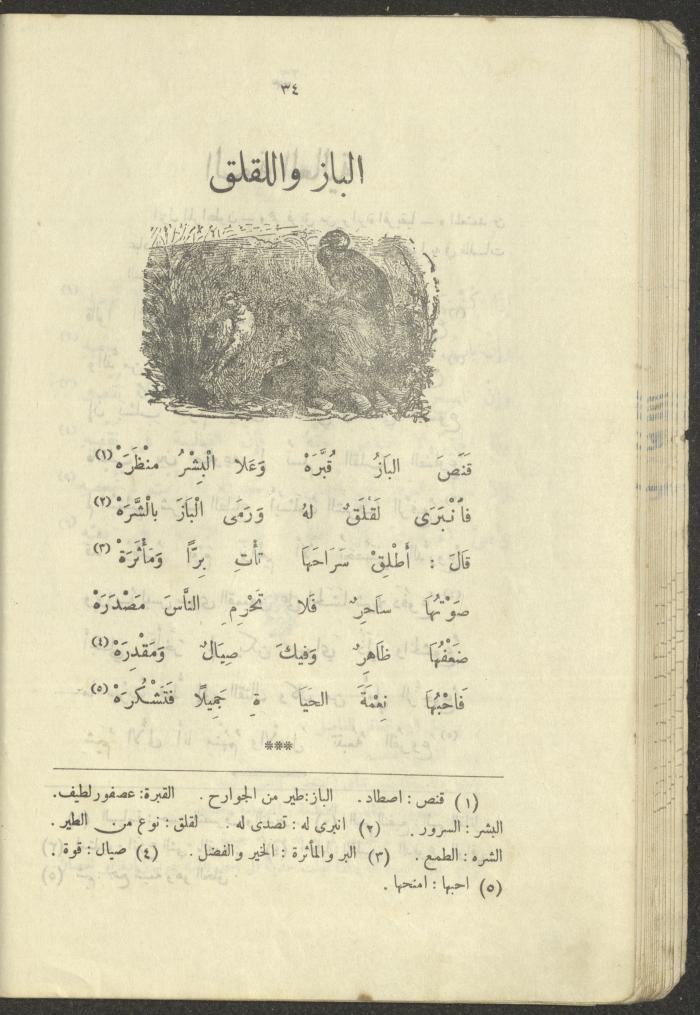 ٣٤
الباز واللقلق
قَنَصَ البَازُ قُبَّرَهْ وَعَلا الْبِشْرُ مَنْظَرَهْ (١)
فَانْبَرَى لَقْلَقٌ لهُ وَرَمَى الْبَازَ بالْشَّرَهْ (٢)
قَالَ : أَطْلِقْ سَرَاحَهَا تأْتِ بِرًّا وَمَأْثَرَةْ (٣)
صَوْتُهَا سَاحِرٌ فَلا تَحْرِمِ النَّاسَ مَصْدَرَهْ
ضَعْفُهَا ظَاهِرٌ وَفيكَ صِيَالٌ وَمَقْدِرَهْ (٤)
فَاحْبُهَا نِعْمَةَ الحَيَا ةِ جَمِيلًا فَتَشْكُرَهْ (٥)
***
(١) قنص : اصطاد . الباز : طير من الجوارح . القبرة : عصفور لطيف .
البشر : السرور . (٢) انبرى له : تصدى له . لقلق : نوع من الطير .
الشره : الطمع . (٣) البر والمأثرة : الخير والفضل . (٤) صيال : قوة .
(٥) احبها : امنحها .